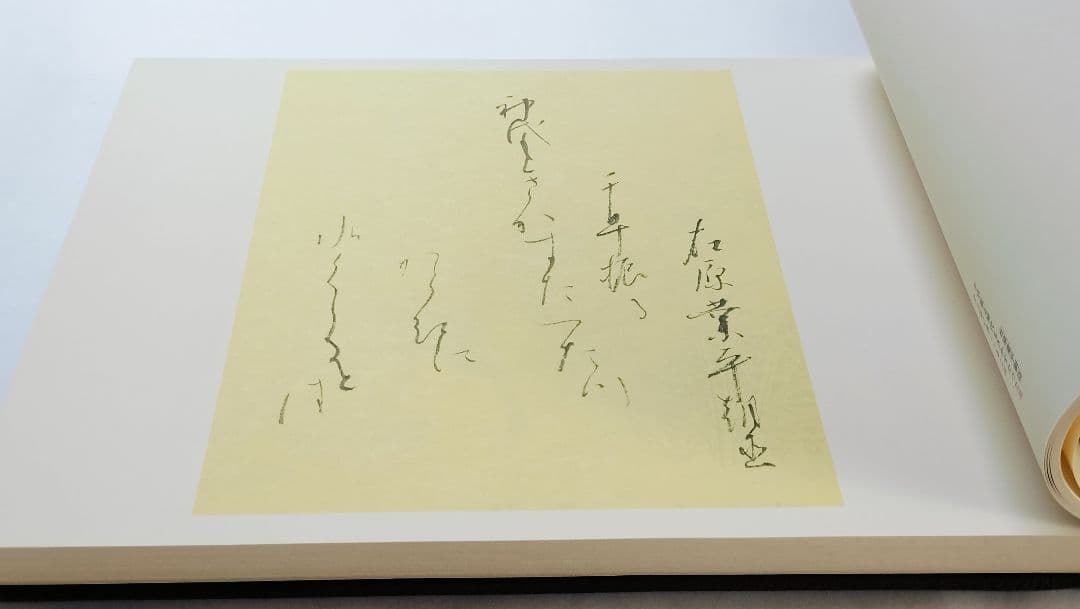 在原業平朝臣
千早振る
神代もきかすたつた川
から紅に
水くくるとは